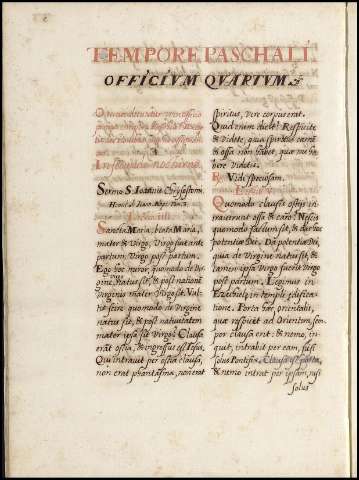 TEMPORE PASCHALI.
OFFICIVM QVARTVM.
In secundo nocturno.
Sermo S. Ioannis Chrysostom.
Lectio iiij.
Sancta Maria, beata Maria,
mater & Virgo. Virgo fuit ante
partum. Virgo post partum.
Ego hoc miror, quomodo de Vir
gine, Virgo natus sit, & post nativitatem
Virginis mater Virgo sit. Vul
tis scire quomodo de Virgine
natus sit, & post nativitatem
mater ipsa sit Virgo? Clausa
erant ostia, & ingressus est Iesus.
Qui intravit per ostia clausa,
non erat phantasma, non erat
spiritus, vere corpus erat.
Quid enim dicit? Respicite
& videte, quia spiritus carnem
& ossa non habet, quæ me ha
bere videtis.
R. Vidi speciosam.
Lectio V.
Quomodo clausis ostijs in
traverunt ossa & caro? Nescis
quomodo factum sit, & dic hoc
potentiæ Dei. Da potentiæ Dei,
quia de Virgine natus sit, &
tamen ipsa Virgo fuerit Virgo
post partum. Legimus in
Ezechiele in templi ædifica
tione. Porta hæc orientalis,
quæ respicit ad Orientem, sem
per clausa erit: & nemo, in
quit, intrabit per eam, nisi
solus Pontifex. Clausa est porta,
& nemo intrat per ipsam, nisi
solus